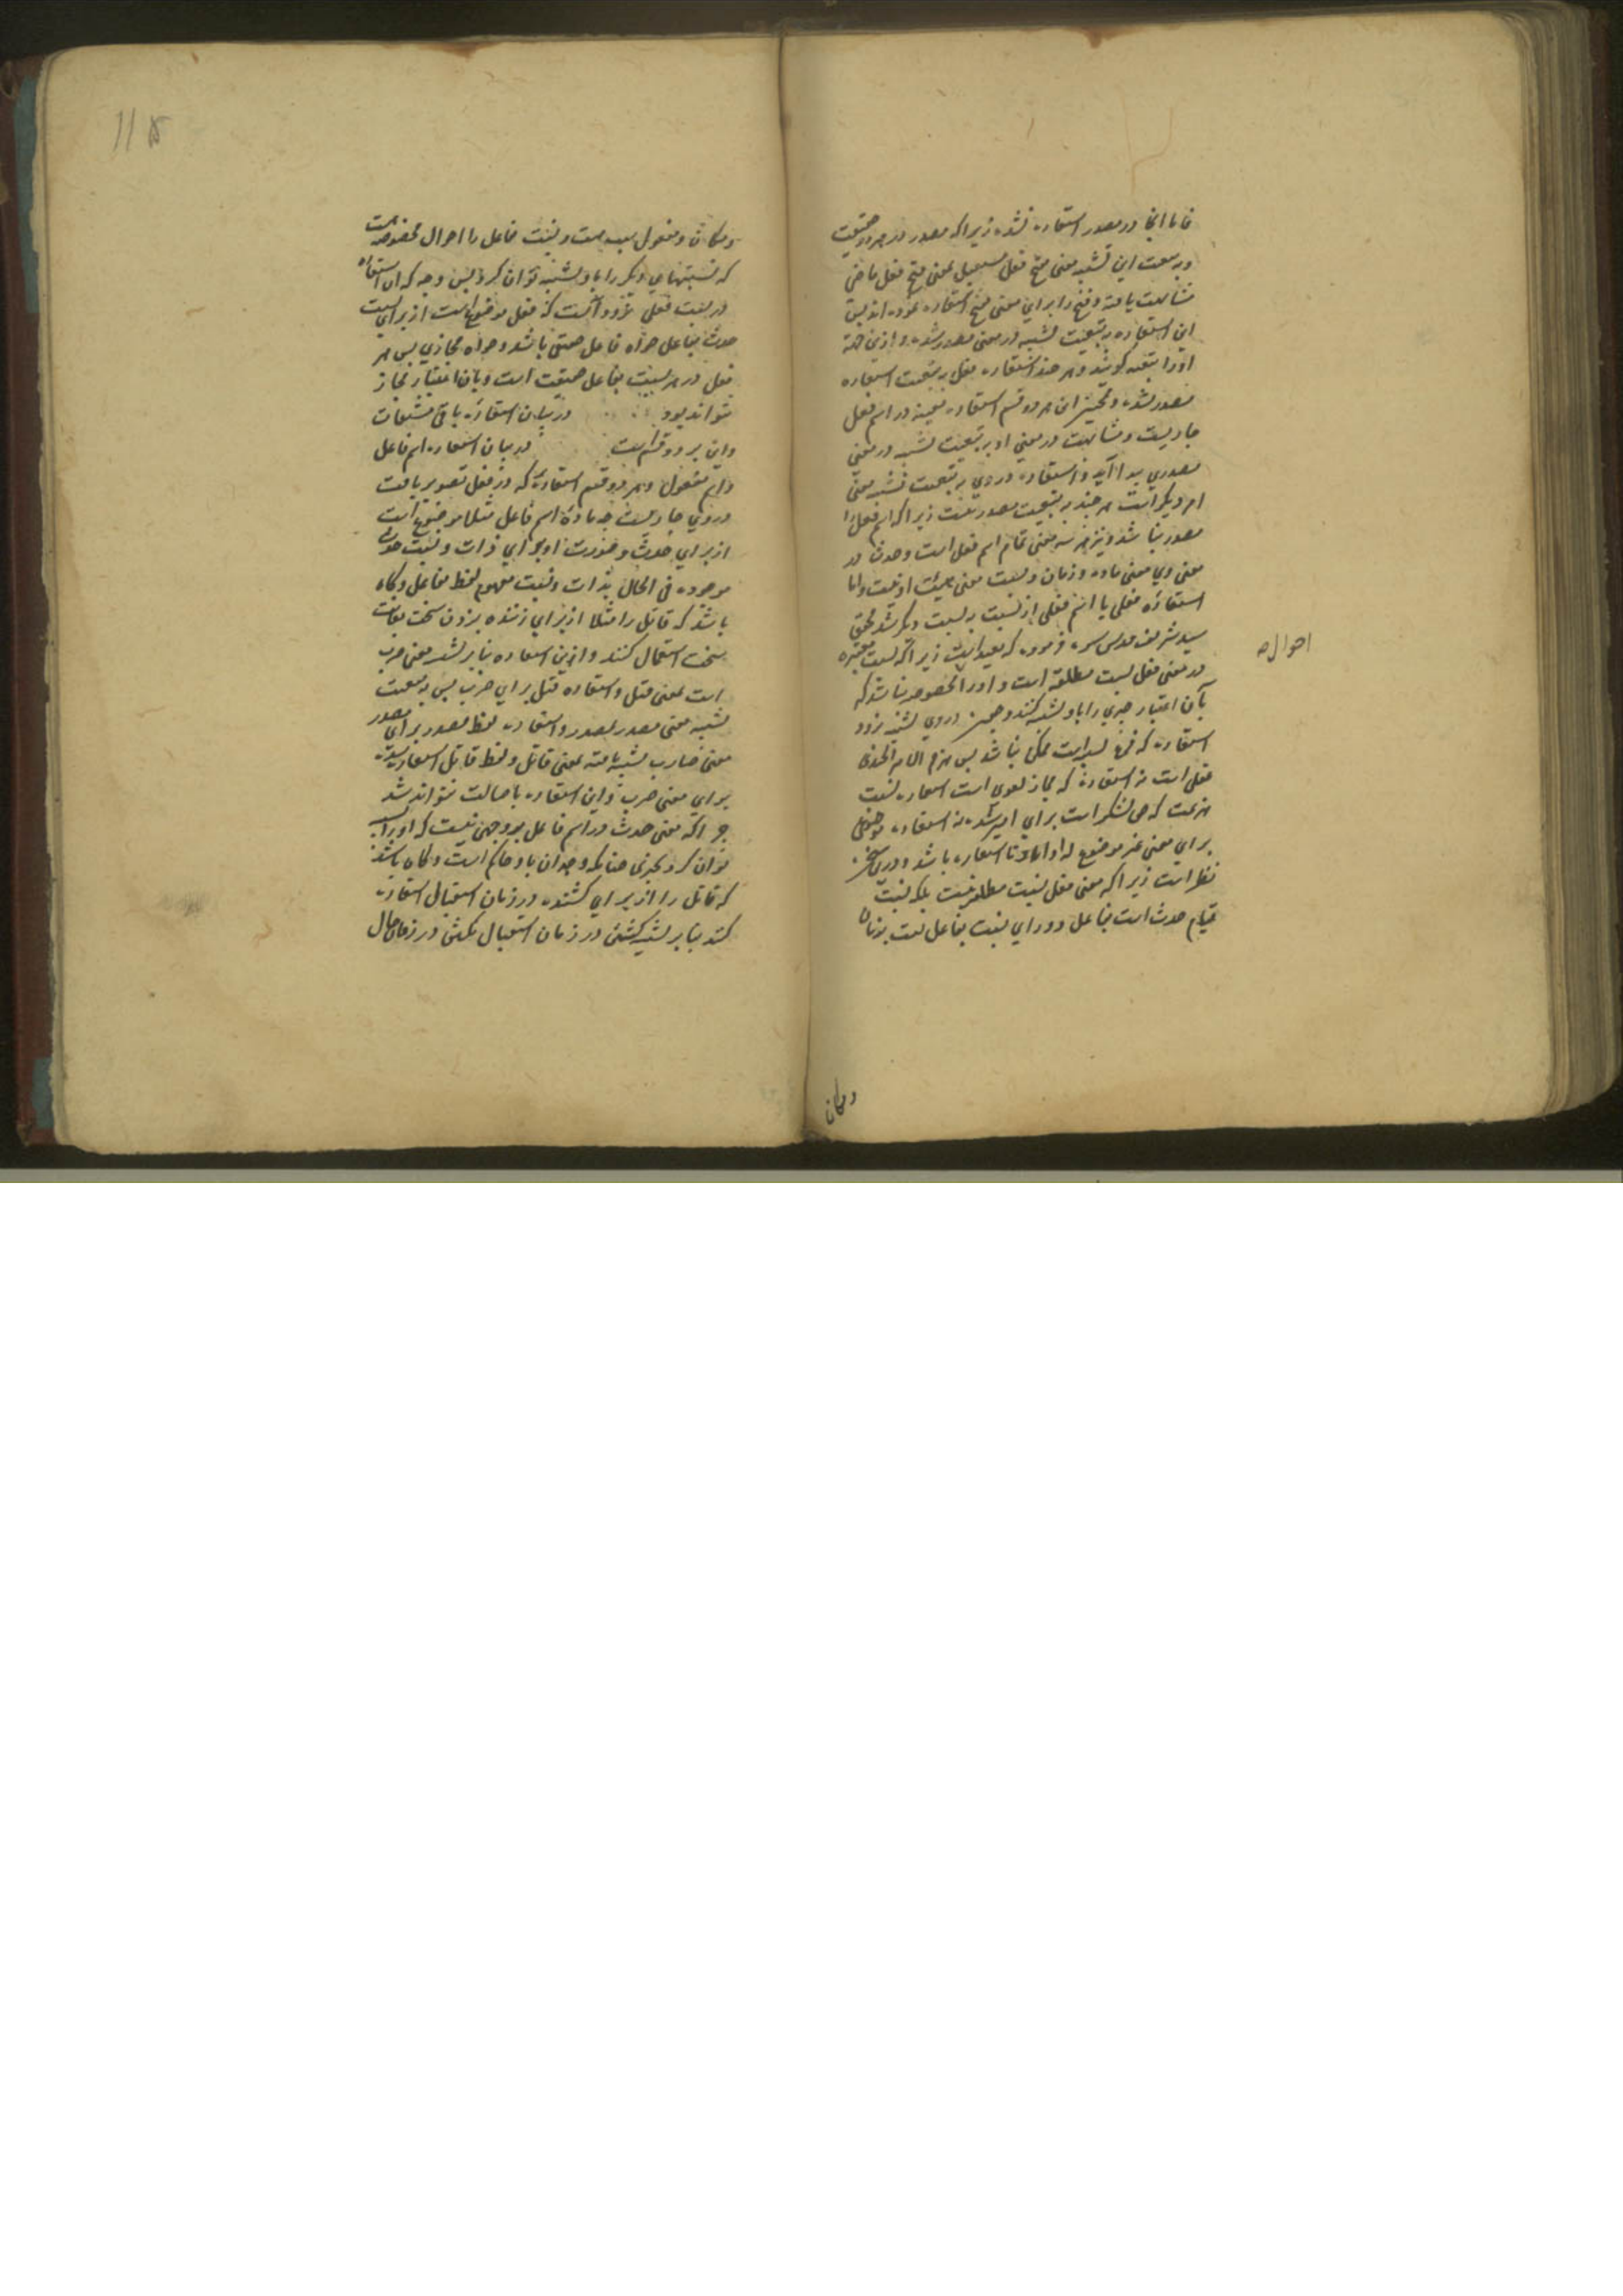 فاما اینجا در مصدر استعاره نشده زیرا که مصدر در هر دو حقیقت
و به تبعیت این تشبیه معنی فتح فعل مستقبل بمعنی فتح فعل ماضی
مشابهت یافته و فتح را برای معنی فتح استعاره نموده اند پس
این استعاره به تبعیت تشبیه در معنی مصدر شده و ازین جهة
او را تبعیه گویند و هر چند استعاره فعل به تبعیت استعاره
مصدر نشده و همچنین این هر دو قسم استعاره بعینه در اسم فعل
جاریست و مشابهت در معنی او به تبعیت تشبیه در معنی
مصدری پیدا آید و استعاره در وی به تبعیت تشبیه معنی
امر دیگر است هر چند به تبعیت مصدر نیست زیرا که اسم فعل را
مصدر نباشد و نیز هر سه معنی تمام اسم فعل است و حدث در
معنی وی معنی ماده و زمان و نسبت معنی هیئت او نیست و اما
استعاره فعلی یا اسم فعلی از نسبت به نسبت دیگر شد محقق
سید شریف قدس سره فرموده که بعید است زیرا که نسبت معتبره
در معنی فعل نسبت مطلقه است و او را خصوصیه نباشد که
بآن اعتبار چیزی را باو تشبیه کنند و همچنین در وی تشبیه نرود
استعاره که فرع تشبیه است ممکن نباشد پس هزم الامیر الجند
فعلی است نه استعاره که مجاز لغوی است استعاره نسبت
هزیمت که حق لشکر است برای امیر شده نه استعاره موضوع
برای معنی غیر موضوع له او اما تا استعاره باشد و درین سخن
نظر است زیرا که معنی فعل نسبت مطلقه نیست بلکه نسبت
قیام حدث است بفاعل و ورای نسبت بفاعل نسبت بزمان
احواله
ومکان
و مکان و مفعول سببیه هست و نسبت فاعل را احوال مخصوصه هست
که نسبتهای دیگر را باو تشبیه توان کرد پس وجه که استعاره
در نسبت فعلی نرود آنست که فعل موضوع است از برای نسبت
حدث بفاعل خواه فاعل حقیقی باشد و خواه مجازی پس هر
فعل در هر نسبت بفاعل حقیقت است و باین اعتبار مجاز
نتواند بود در بیان استعاره باقی مشتقات
و این بر دو قسم است در بیان استعاره اسم فاعل
و اسم مفعول و هر دو قسم استعاره که در فعل تصویر یافت
در وی جاریست چه ماده اسم فاعل مثلا موضوع است
از برای حدث و صورت او برای ذات و نسبت حدث
موجوده فی الحال بذات و نسبت مفهوم لفظ فاعل و گاه
باشد که قاتل را مثلا از برای زننده بزدن سخت بغایت
سخت استعمال کنند و این استعاره بنا بر تشبیه معنی ضرب
است بمعنی قتل و استعاره قتل برای ضرب پس به تبعیت
تشبیه معنی مصدر بمصدر و استعاره لفظ مصدر برای مصدر
معنی ضارب تشبیه یافته بمعنی قاتل و لفظ قاتل استعاره شده
برای معنی ضرب و این استعاره باصالت نتواند شد
چرا که معنی حدث در اسم فاعل بر وجهی نیست که او را تشبیه
توان کرد بچیزی چنانکه وجدان باو حاکم است و گاه باشد
که قاتل را از برای کشنده در زمان استقبال استعاره
کنند بنا بر تشبیه کشتن در زمان استقبال بکشتن در زمان حال
۱۱۵